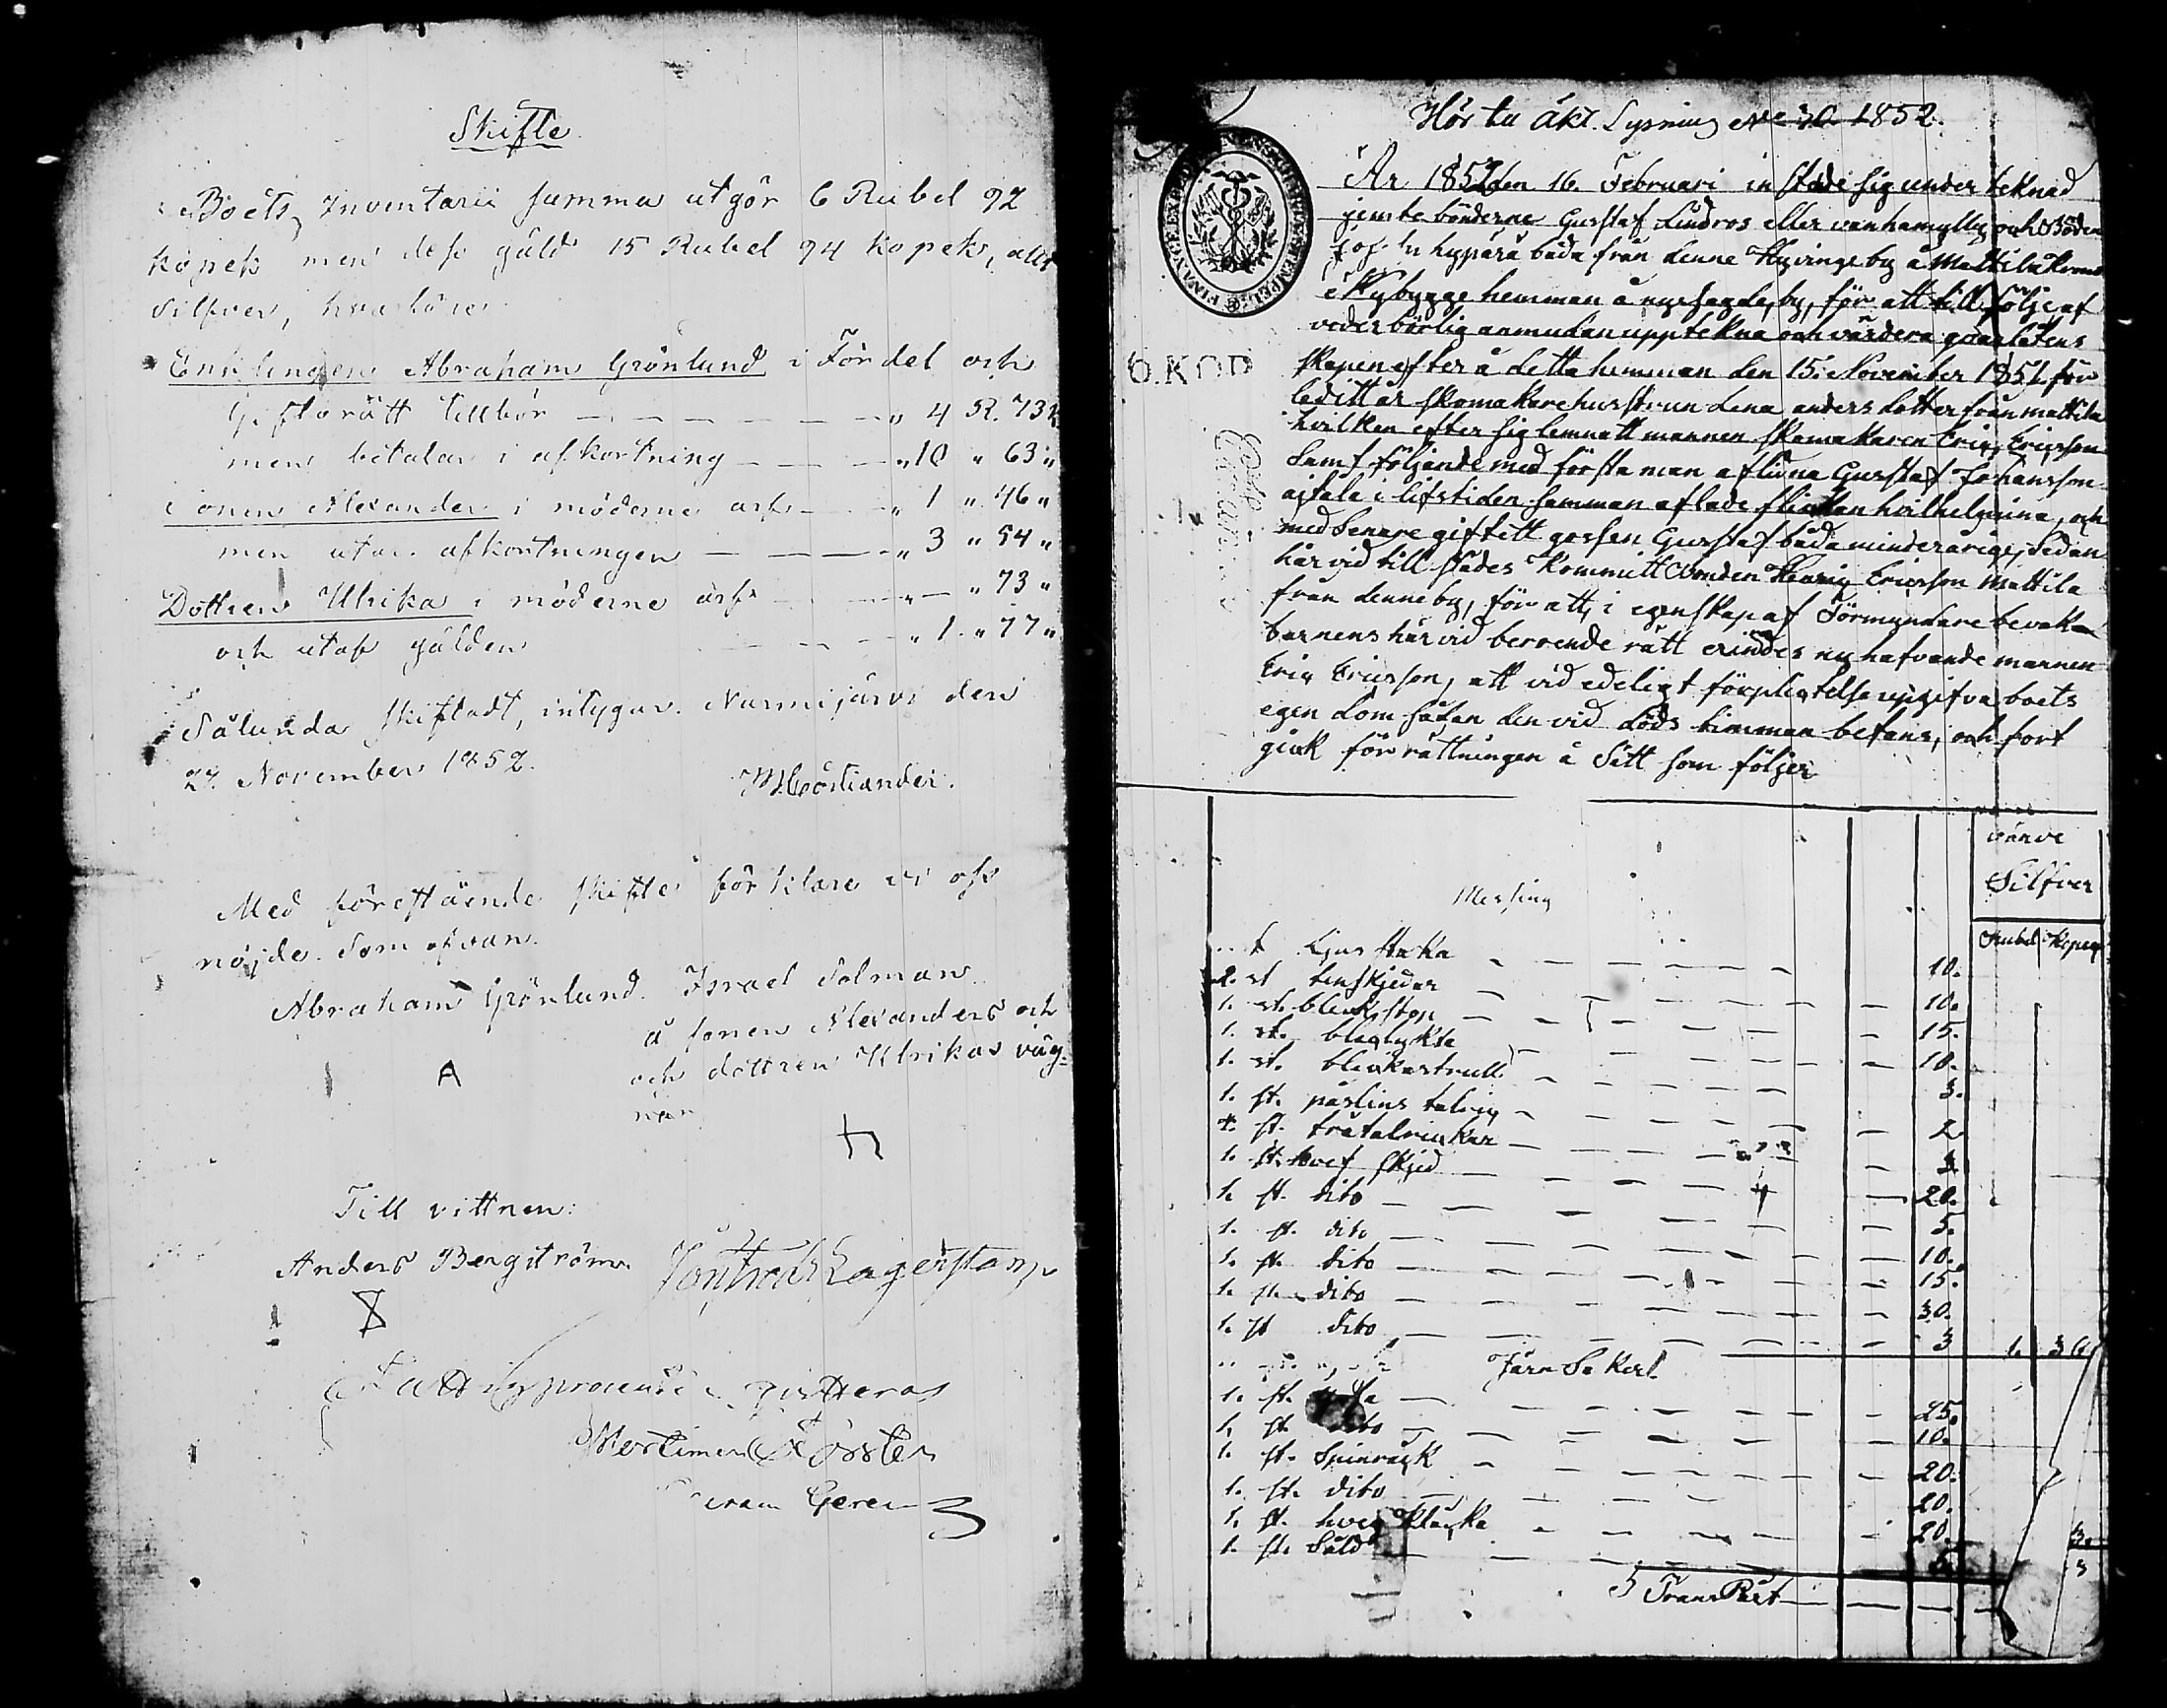 Skifte.
Boets Inventarii summa utgör 6 Rubel 92
kopek men dess gäld 15 Rubel 94 kopek, allt
Silfver, hvarföre
Enklingen Abraham Grönlund i Fördel och
Giftorätt tillhör — — — — — " 4 R. 73 k
men betalar i afkortning — — — " 10 " 63 "
Sonen Alexander i möderne arf — — " 1 " 46 "
men utur afkortningen — — — " 3 " 54 "
Dottren Ulrika i möderne arf — — " — " 73 "
och utaf gälden — — — " 1. " 77 "
Sålunda skiftadt, intygar. Nurmijärvi den
27 November 1852.
Med förestående skifte förklare vi oss
nöjde. Som ofvan.
Abraham Grönlund. Israel Salman
å sonen Alexanders och
och dottren Ulrikas väg-
nar
Till vittnen:
Anders Bergström Lagerstam
Fattigprocent qvitteras
Mortimer Förster
Geren
Hör tu äkt. Lysning No 30. 1852.
År 1852 den 16 Februari in städe sig under teknad
jemte bönderne Gustaf Lindros eller vanhamylly och Bonden
hypärä båda från denne Hyvinge by å Mattila Krono
Nybygge hemman å nyssagde by, för att till följe af
vederbörlig anmodan uppteckna och värdera qvarlåtens
skapen efter å detta hemman den 15. November 1851 för
ledit år Skomakarehustrun Lena andersdotter från mattila
hvilken efter sig lemnatt mannen Skomakaren Eric Ericsson
Samt följande med första man aflidna Gustaf Johansson
i lifstiden samman aflade flickan hvilhelmina, och
med senare giftett gossen Gustaf båda minderårige, Sedan
här vid till städes kommitt Bonden Henric Ericsson Mattila
från denne by, för att, i egenskap af Förmyndare bevaka
barnens här vid beroende rätt erindes nu hafvande mannen
Eric Ericsson, att vid edeligt förpligtelse uppgifva boets
egendom sådan den vid döds timman befans, och fort
gick för rättningen å Sätt som följer
6. KOP
Värde
Silfver
Rubel Kopek
Messing
Ljus staka — — — 10.
2. st tenskjedar — — — 10.
1. st. bleckstop — — — 15.
1. st. blecklykta — — — 10.
1. st. bleckastrull — — — 3.
1. st. påslins talric — — — 2.
4. st. trätalrickar — — — 3
1. st. hoef skjed — — — 20.
1. st. dito — — — 5.
1. st. dito — — — 10.
1. st. dito — — — 15.
1. st. dito — — — 30.
1. st dito — — — 3 1. 36
Järn Saker
1. st. — — — 25.
1. st. dito — — — 10.
1. st. Spinråck — — — 20.
1. st. dito — — — 20.
1. st. — — — 20.
1. st. Såld — — — 5.
TransPort — — —